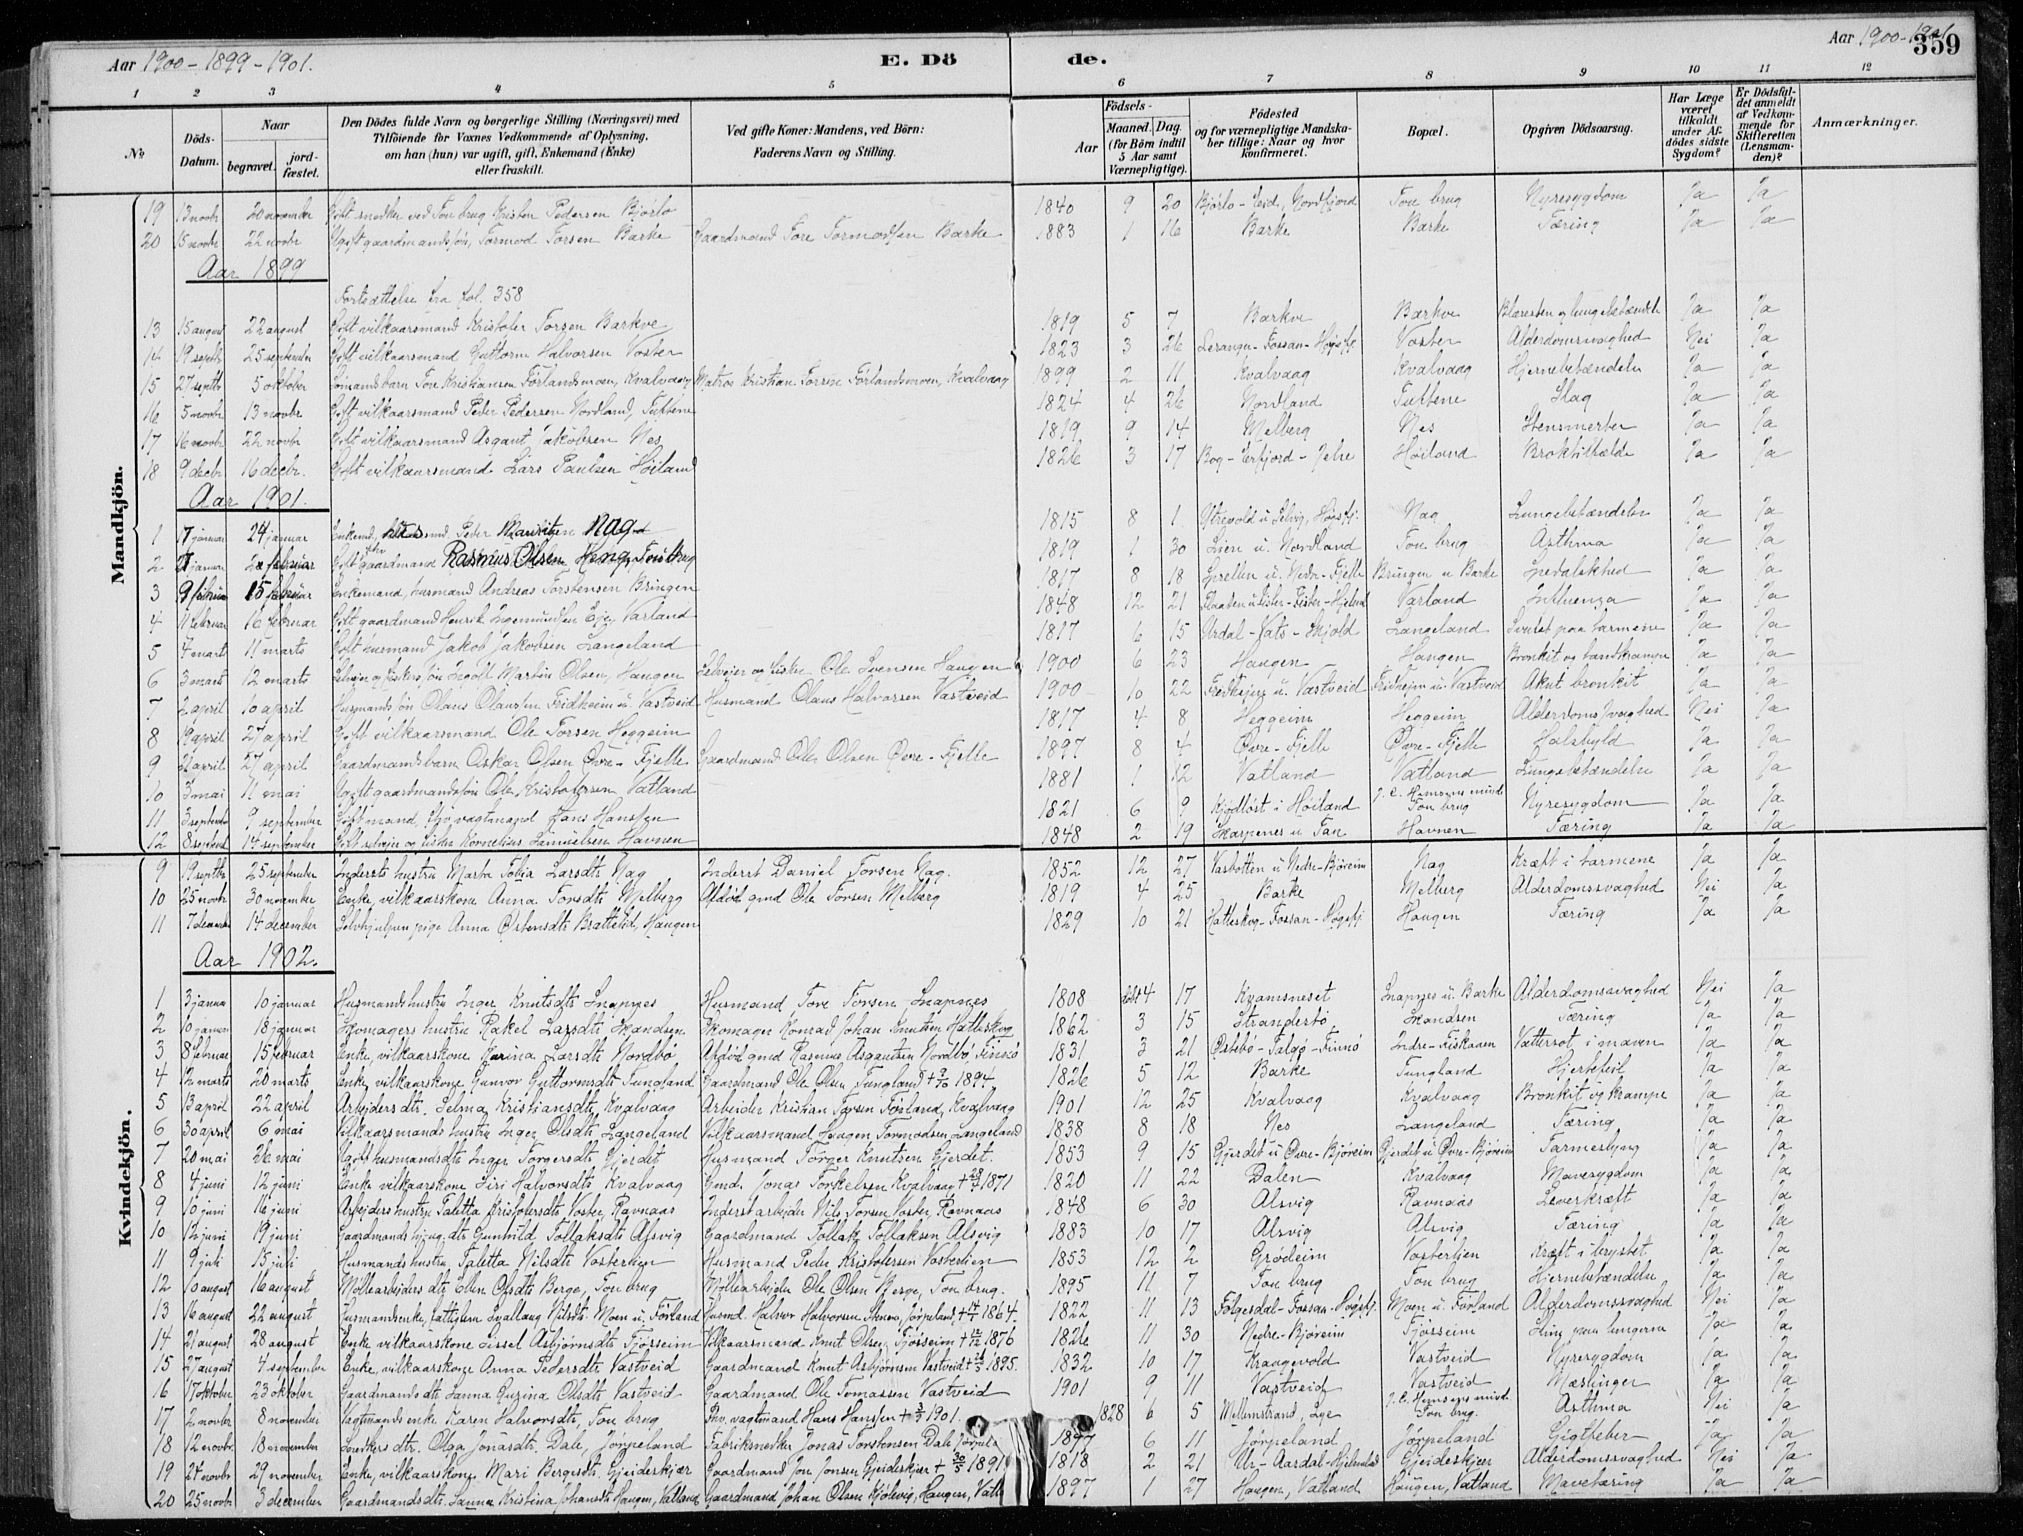 Aar 1900 - 1899 - 1901.
E. Dö
de.
Aar 1900-1901
359
1 2 3 4 5 6 7 8 9 10 11 12
No
Döds-Datum.
Naar
begravet.
jord-fæstet.
Den Dödes fulde Navn og borgerlige Stilling (Næringsvei) med
Tilföiende for Voxnes Vedkommende af Oplysning,
om han (hun) var ugift, gift, Enkemand (Enke)
eller fraskilt.
Ved gifte Koner: Mandens, ved Börn:
Faderens Navn og Stilling.
Födsels-
Aar
Maaned. Dag.
(for Börn indtil
5 Aar samt
Værnepligtige).
Födested
og for værnepligtige Mandska-
ber tillige: Naar og hvor
konfirmeret.
Bopæl.
Opgiven Dödsaarsag.
Har Læge
været
tilkaldt
under Af-
dödes sidste
Sygdom?
Er Dödsfal-
det anmeldt
af Vedkom-
mende for
Skifteretten
(Lensman-
den)?
Anmærkninger.
Mandkjön.
19 13 novbr 20 november Gift snedker ved Tou brug Kristen Pedersen Bjørlo 1840 9 20 Bjørlo - Eid, Nordfjord Tou brug Nyresygdom Ja Ja
20 15 novbr 22 novbr Ugift gaardmandssøn, Tormod Torsen Barke Gaardmand Tore Tormodsen Barke 1883 1 16 Barke Barke Tæring Ja Ja
Aar 1899
Fortsættelse fra fol. 358
13 15 august 22 august Gift vilkaarsmand Kristofer Torsen Barkve 1819 5 7 Barkve Barkve Ja Ja
14 19 septbr 25 september Gift vilkaarsmand Guttorm Halvorsen Voster 1823 3 26 Leranger - Fossan - Voster Alderdomssvaghed Nei Ja
15 27 septbr 5 oktober Sømandsbarn Tore Kristiansen Førlandsmoen, Kvalvaag Matros Kristian Torsen Førlandsmoen, Kvalvaag 1899 2 11 Kvalvaag Kvalvaag Hjernebetændelse Ja Ja
16 5 novbr 13 novbr Gift vilkaarsmand Peder Pedersen Nordland, Tuftene 1824 4 26 Nordland Tuftene Slag Ja Ja
17 16 novbr 22 novbr Gift vilkaarsmand Asgaut Jakobsen Nes 1819 9 14 Melberg Nes Stensmerter Ja Ja
18 9 decbr 16 decbr. Gift vilkaarsmand Lars Paulsen Høiland 1826 3 17 Bog - Erfjord - Jelse Høiland Broktilfælde Ja Ja
Aar 1901.
1 17 januar 24 januar Enkemd, Peder Mauritzen Nag 1815 8 1 Nag Lungebetændelse Ja Ja
2 januar februar Gift gaardmand Rasmus Olsen Heng, Tou brug 1819 1 30 Lien u. Nordland Tou brug Asthma Ja Ja
3 9 februar 15 februar Enkemand, husmand Andreas Torstensen Bringen 1817 8 18 Bringen u. Barke Spedalskhed Ja Ja
4 11 februar 16 februar Gift gaardmand Henrik Ingemundsen Eje, Varland 1848 12 21 Varland Influenza Ja Ja
5 4 marts 11 marts Gift husmand Jakob Jakobsen Langeland 1817 6 15 Urdal - Vats - Skjold Langeland Svulst paa tarmene Ja Ja
6 3 marts 12 marts Selveier og fiskers søn Ingolf Martin Olsen, Haugen Selveier og fisker Ole Svensen Haugen 1900 6 23 Haugen Haugen Bronkit og tandkrampe Ja Ja
7 2 april 10 april Husmands søn Olaus Olaussen Fridheim u. Vastveid Husmand Olaus Halvorsen Vastveid 1900 10 22 Fredheim u. Vastveid Fridheim u. Vastveid Akut bronkit Ja Ja
8 19 april 27 april Gift vilkaarsmand Ole Torsen Heggeim 1817 4 8 Heggeim Heggeim Alderdomssvaghed Nei Ja
9 21 april 27 april Gaardmandsbarn Oskar Olsen Øvre-Fjelle Gaardmand Ole Olsen Øvre-Fjelle 1897 8 4 Øvre-Fjelle Øvre-Fjelle Halsbyld Ja Ja
10 3 mai 11 mai Ugift gaardmandssøn Ole Kristofersen Vatland 1881 1 12 Vatland Vatland Lungebetændelse Ja Ja
11 3 september 9 september Gift mand, fhv. vagtmand Hans Hansen 1821 6 9 Kjødløst i Høiland J. C. Hemsens minde Tou brug Nyresygdom Ja Ja
12 8 septemb 14 september Gift selveier og fisker Kornelius Samuelsen Havnen 1848 2 19 Skarpenes u Tau Havnen Tæring Ja Ja
Kvindekjön.
9 19 septbr 25 september Inderstshustru Marta Tobia Larsdtr Nag Inderst Daniel Torsen Nag. 1852 12 27 Vasbotten u Nedre-Bjøreim Nag Kræft i tarmene Ja Ja
10 25 novbr 30 november Enke, vilkaarskone Anna Torsdtr Melberg Afdød gmd Ole Torsen Melberg 1819 4 25 Barke Melberg Alderdomssvaghed Nei Ja
11 7 december 14 december Selvhjulpen pige Anna Østensdtr Bratteteid, Haugen 1829 10 21 Hatleskog - Fossan - Høgsfj. Haugen Tæring Ja Ja
Aar 1902.
1 3 januar 10 januar Husmandshustru Inger Knutsdtr Snapnes Husmand Tore Torsen Snapnes 1808 4 17 Kvamsneset Snapnes u. Barke Alderdomssvaghed Nei Ja
2 10 januar 18 januar Skomagers hustru Rakel Larsdtr Skandsen Skomager Konrad Johan Knutsen Hatleskog 1862 3 15 Strandebø Skandsen Tæring Ja Ja
3 8 februar 15 februar Enke, vilkaarskone Karina Larsdtr Nordbø Afdød gmd Rasmus Asgautsen Nordbø, Finnø 1831 3 21 Østebø - Talgø - Finnø Indre-Fiskaaen Vattersot i maven Ja Ja
4 12 marts 20 marts Enke, vilkaarskone Gunvor Guttormsdtr Tungland Gaardmand Ole Olsen Tungland + 7/10 1894 1826 5 12 Barke Tungland Hjertefeil Ja Ja
5 13 april 22 april Arbeidersdtr. Selma Kristiansdtr Kvalvaag Arbeider Kristian Torsen Førland, Kvalvaag 1901 12 25 Kvalvaag Kvalvaag Bronkit og krampe Ja Ja
6 30 april 6 mai Vilkaarsmands hustru Inger Olsdtr Langeland Vilkaarsmand Haagen Tormodsen Langeland 1838 8 18 Nes Langeland Tæring Ja Ja
7 20 mai 26 mai Ugift husmandsdtr Inger Torgersdtr Gjerdet Husmand Torger Knutsen Gjerdet. 1853 9 15 Gjerdet u Øvre-Bjøreim Gjerdet u Øvre-Bjøreim Tarmeslyng Ja Ja
8 4 juni 12 juni Enke vilkaarskone Siri Halvorsdtr Kvalvaag Gmd. Jonas Torkelsen Kvalvaag + 1871 1820 11 22 Dalen Kvalvaag Mavesygdom Ja Ja
9 10 juni 16 juni Arbeiders hustru Taletta Kristofersdtr Voster, Ravnaas Inderst arbeider Nils Torsen Voster, Ravnaas 1848 6 30 Alsvig Ravnaas Leverkræft Ja Ja
10 12 juni 19 juni Gaardmands dtr Gunhild Tollaksdtr Alsvig Gaardmand Tollak Tollaksen Alsvig 1883 10 17 Alsvig Alsvig Tæring Ja Ja
11 9 juli 15 juli Husmands hustru Taletta Nilsdtr Vosterlien Husmand Peder Kristofersen Vosterlien 1853 12 2 Grødeim Vosterlien Kræft i brystet Ja Ja
12 10 august 16 august Møllearbeiders dtr Ellen Olsdtr Berge, Tou brug Møllearbeider Ole Olsen Berge, Tou brug. 1895 11 7 Tou brug Tou brug Hjernebetændelse Ja Ja
13 16 august 22 august Husmandsenke, fattiglem Nilsdtr. Moen u. Førland Husmd. Halvor Halvorsen Jørpeland + 1864. 1822 11 13 Følgesdal - Fossan - Høgsfj. Moen u. Førland Alderdomssvaghed Nei Ja
14 21 august 28 august Enke vilkaarskone Sissel Asbjørnsdtr Tjøsseim Vilkaarsmand Knut Olsen Tjøsseim + 1876 1826 11 30 Nedre-Bjøreim Tjøsseim Slim paa lungerne Ja Ja
15 27 august 4 september Enke, vilkaarskone Anna Pedersdtr Vastveid Gaardmand Knut Asbjørnsen Vastveid + 1895. 1832 10 17 Krangevold Vastveid Nyresygdom Ja Ja
16 17 oktober 23 oktober Gaardmandsdtr Sanna Gurina Olsdtr Vastveid Gaardmand Ole Tomassen Vastveid 1901 9 11 Vastveid Vastveid Mæslinger Ja Ja
17 2 novbr 8 november Vagtmands enke Karen Halvorsdtr, Tou brug Fhv. vagtmand Hans Hansen + 3/9 1901. 1828 6 5 Mellemstrand, Lye J. C. Hemsens minde Tou brug. Asthma Nei Ja
18 12 novbr. 18 november Snedkers dtr. Olga Jonasdtr. Dale, Jørpeland Fabriksnedker Jonas Torstensen Dale 1897 6 11 Jørpeland Jørpeland Gigtfeber Ja Ja
19 24 novbr 29 november Enke, vilkaarskone Mari Bergesdtr. Gjeideskjær Gaardmand Jon Jonsen Gjeideskjær + 1891 1818 2 21 Ur - Aardal - Hjelmeland Gjeideskjær Alderdomssvaghed Nei Ja
20 25 novbr 3 december Gaardmandsdtr. Sanna Kristina Johansdtr Haugen, Vatland Gaardmand Johan Olsen Kjølevig, Haugen, 1897 1 27 Haugen, Vatland Haugen, Vatland Mavetæring Ja Ja